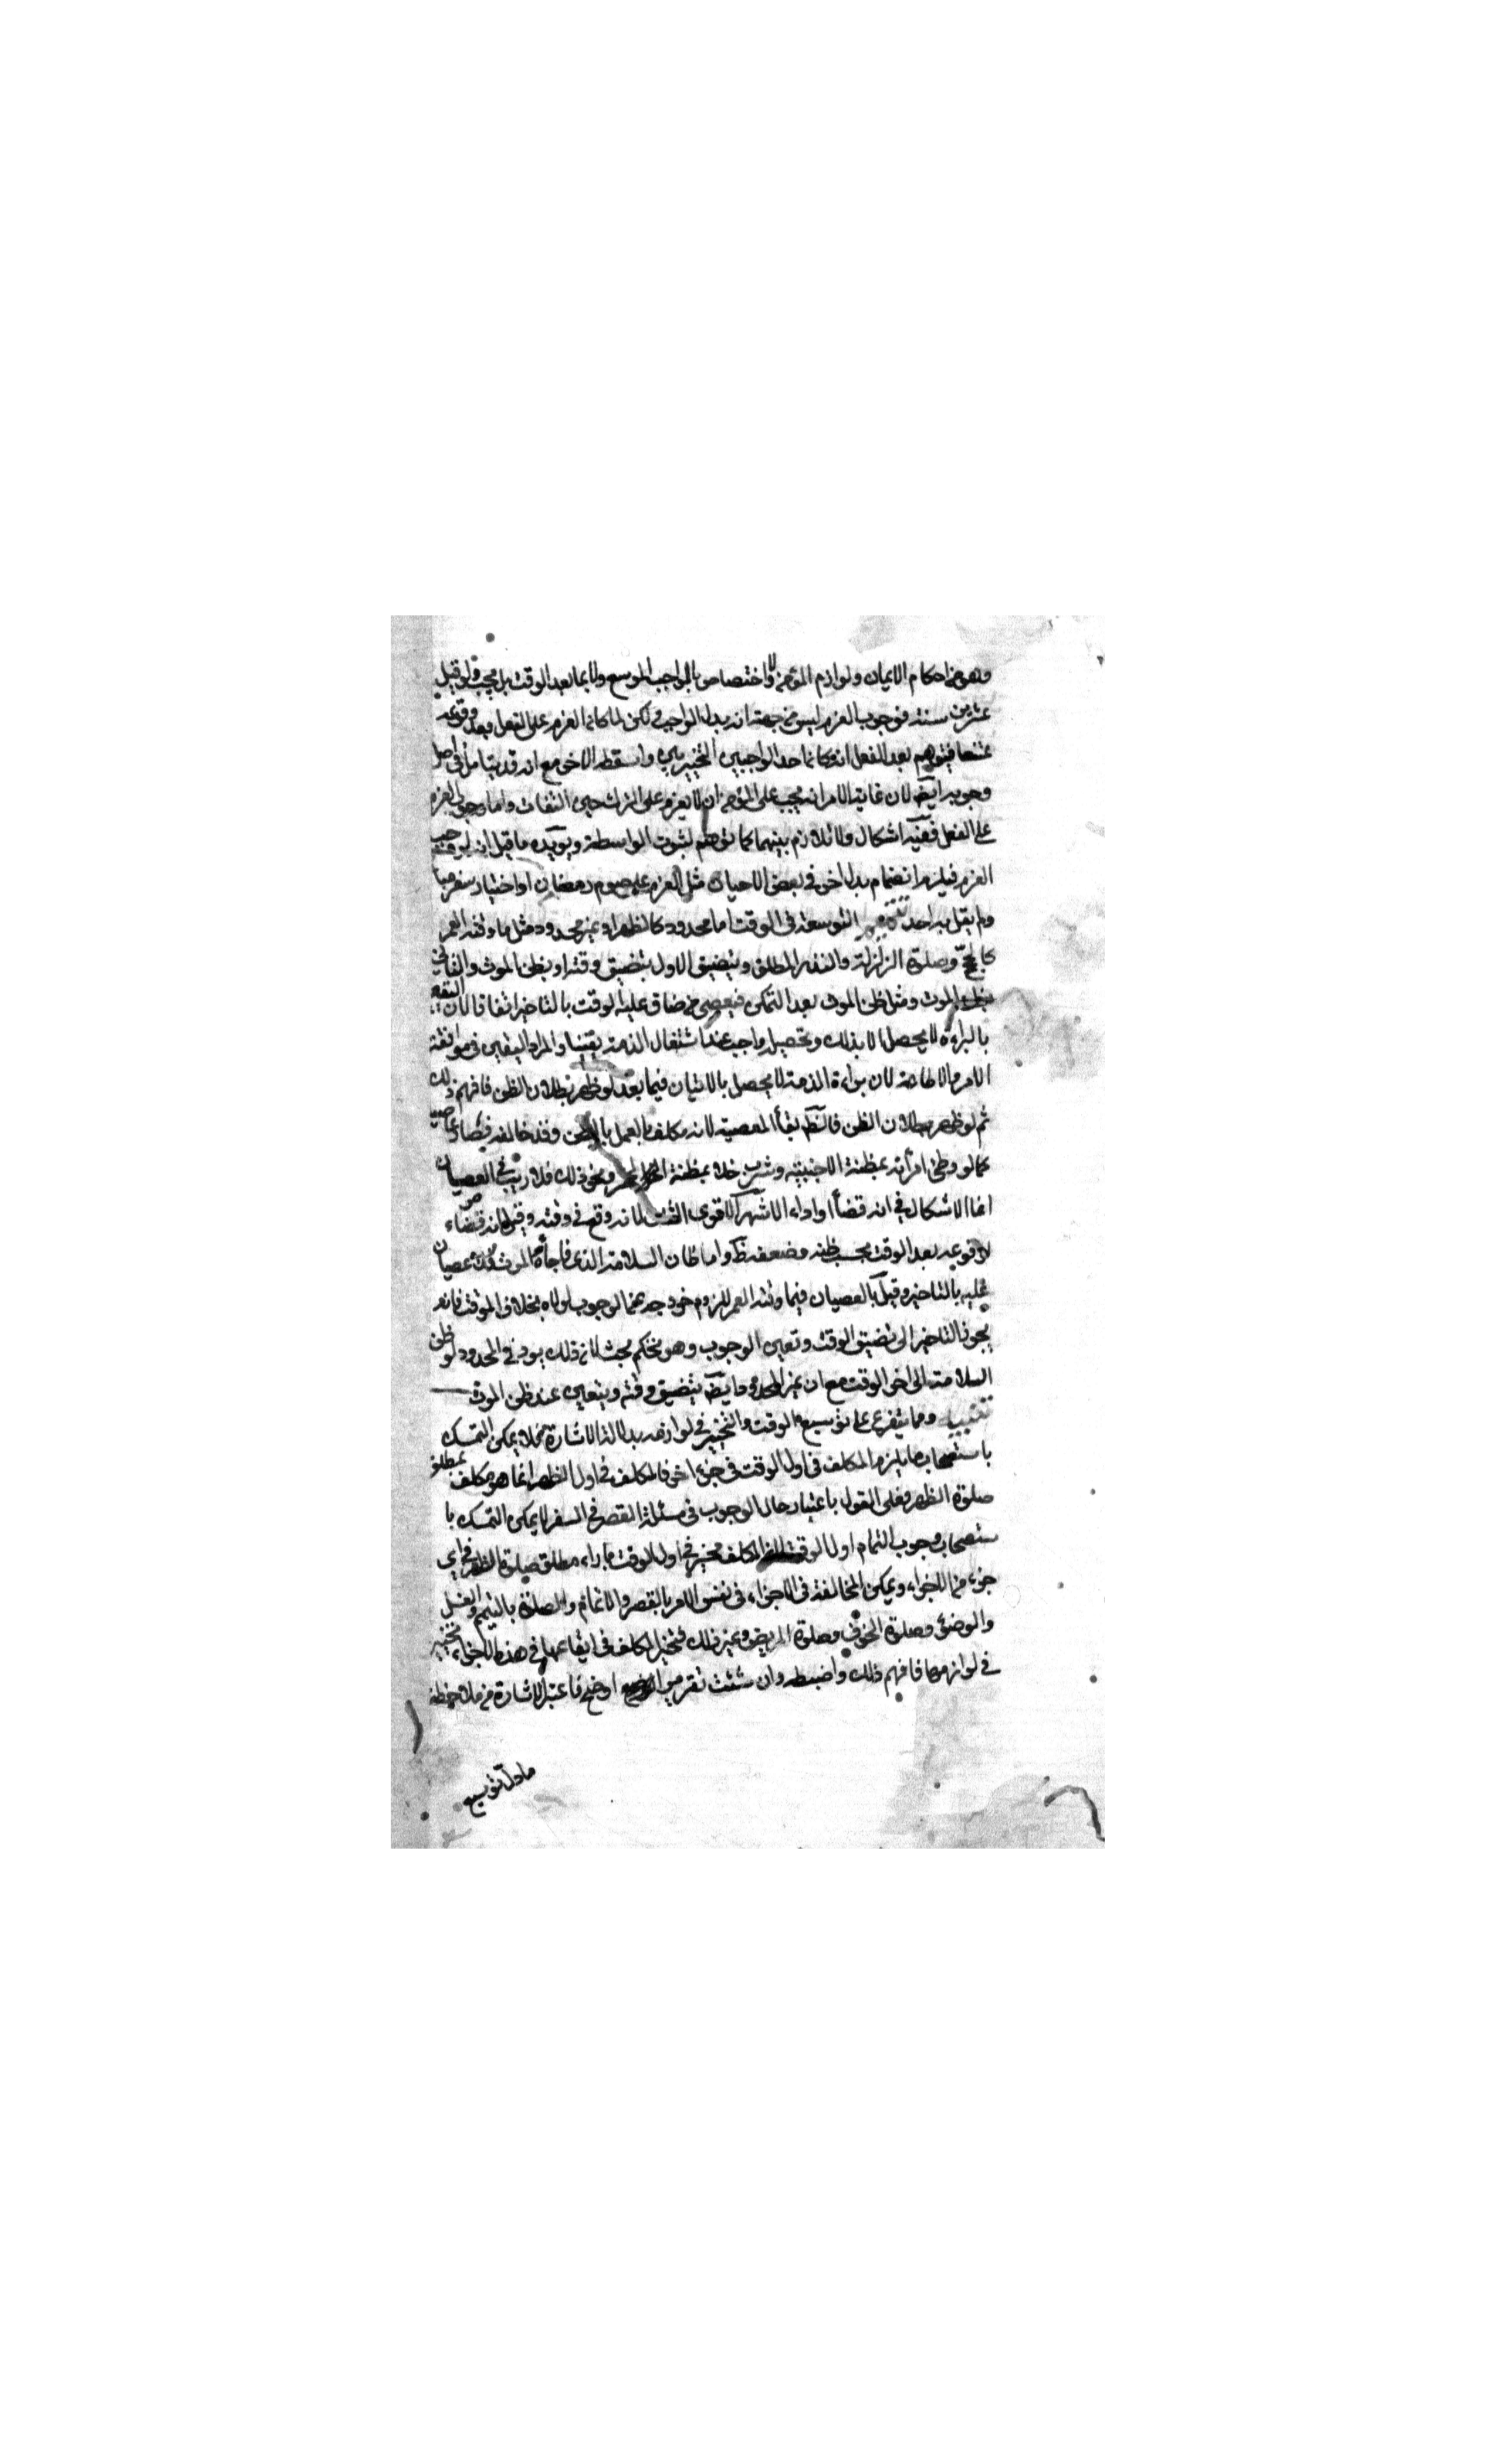 وهو من احكام الايمان ولوازم المؤمن ولا اختصاص بالواجب الموسع ولا بما بعد الوقت بل يجب ولو قبل
عشرين سنة فوجوب العزم ليس من جهة انه بدل الواجب ولكن لما كان العزم على الفعل وبعد وقوعه
ممتنعا فيتوهم بعد الفعل انه كان احد الواجبين التخييريين واسقطه الاخر مع انه قد يتامل في اصل
وجوبه ايضا لان غاية الامر انه يجب على المؤمن ان لا يعزم على الترك حين التفات واما وجوب العزم
على الفعل ففيه اشكال ولا تلازم بينهما كما توهم لثبوت الواسطة ويؤيده ما قيل انه لو وجب
العزم فيلزم انضمام بدل اخر في بعض الاحيان مثل العزم على صوم رمضان او اختيار سفر مباح
ولم يقل به احد تتميم التوسعة في الوقت اما محدود كالظهر او غير محدود مثل ما وقته العمر
كالحج وصلوة الزلزلة والنذر المطلق ويتضيق الاول بتضيق وقته او بظن الموت والثاني
بظن الموت ومثل ظن الموت بعد التمكن فيعصى من ضاق عليه الوقت بالتاخير اتفاقا لان اليقين
بالبراءة لا يحصل الا بذلك وتحصيله واجب عند اشتغال الذمة يقينا والمراد اليقين في موافقة
الامر والاطاعة لان براءة الذمة لا يحصل بالاتيان فيما بعد لو ظهر بطلان الظن فافهم ذلك
ثم لو ظهر بطلان الظن فالظ بقاء المعصية لانه مكلف بالعمل بالظن وقد خالفه فصار عاصيا
كما لو وطئ امرأته بمظنة الاجنبية وشرب خلا بمظنة الخمر ونحو ذلك فلا ريب في العصيان
انما الاشكال في انه قضاء او اداء الاشهر الاقوى الثاني لانه وقع في وقته وقيل انه قضاء
لوقوعه بعد الوقت بحسب ظنه وضعفه ظ واما ظان السلامة الذي فاجأه الموت فلا عصيان
عليه بالتاخير وقيل بالعصيان فيما وقته العمر للزوم خروجه عن الوجوب لولاه بخلاف الموقت فانه
يجوز التاخير الى تضيق الوقت وتعين الوجوب وهو تحكم بحت لان ذلك يرد في المحدود لو ظن
السلامة الى اخر الوقت مع ان غير المحدود ايضا يتضيق وقته ويتعين عند ظن الموت
تنبيه ومما يتفرع على توسيع الوقت والتخيير في لوازمه بدلالة الاشارة فلا يمكن التمسك
باستصحاب ما يلزم المكلف في اول الوقت في جزء اخر فالمكلف في اول الظهر انما هو مكلف بمطلق
صلوة الظهر فعلى القول باعتبار حال الوجوب في مسئلة القصر في السفر لا يمكن التمسك با
ستصحاب وجوب التمام اول الوقت لان المكلف مخير في اول الوقت باداء مطلق صلوة الظهر في اي
جزء من الاجزاء ويمكن المخالفة في الاجزاء في نفس الامر بالقصر والاتمام والصلوة بالتيمم والغسل
والوضوء وصلوة الخوف وصلوة المريض وغير ذلك فتخيير المكلف في ايقاعها في هذه الاجزاء تخيير
في لوازمها فافهم ذلك واضبطه وان شئت تقريبا اوضح فاعتبر الاشارة من ملاحظة
ما دل توسيع